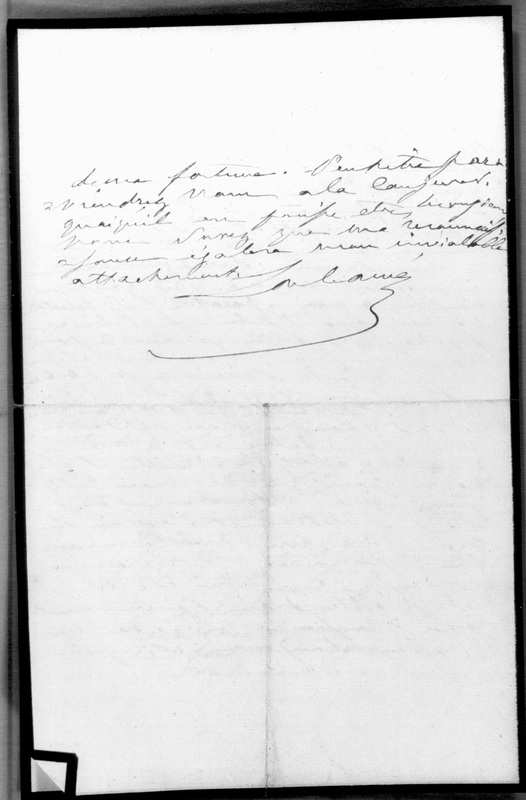 de ma fortune. Peut être par
viendrez vous a la conjurer.
quoiqu'il en puisse etre, croyez
vous que ma reconnais
sance egalera mon inviolable
attachement